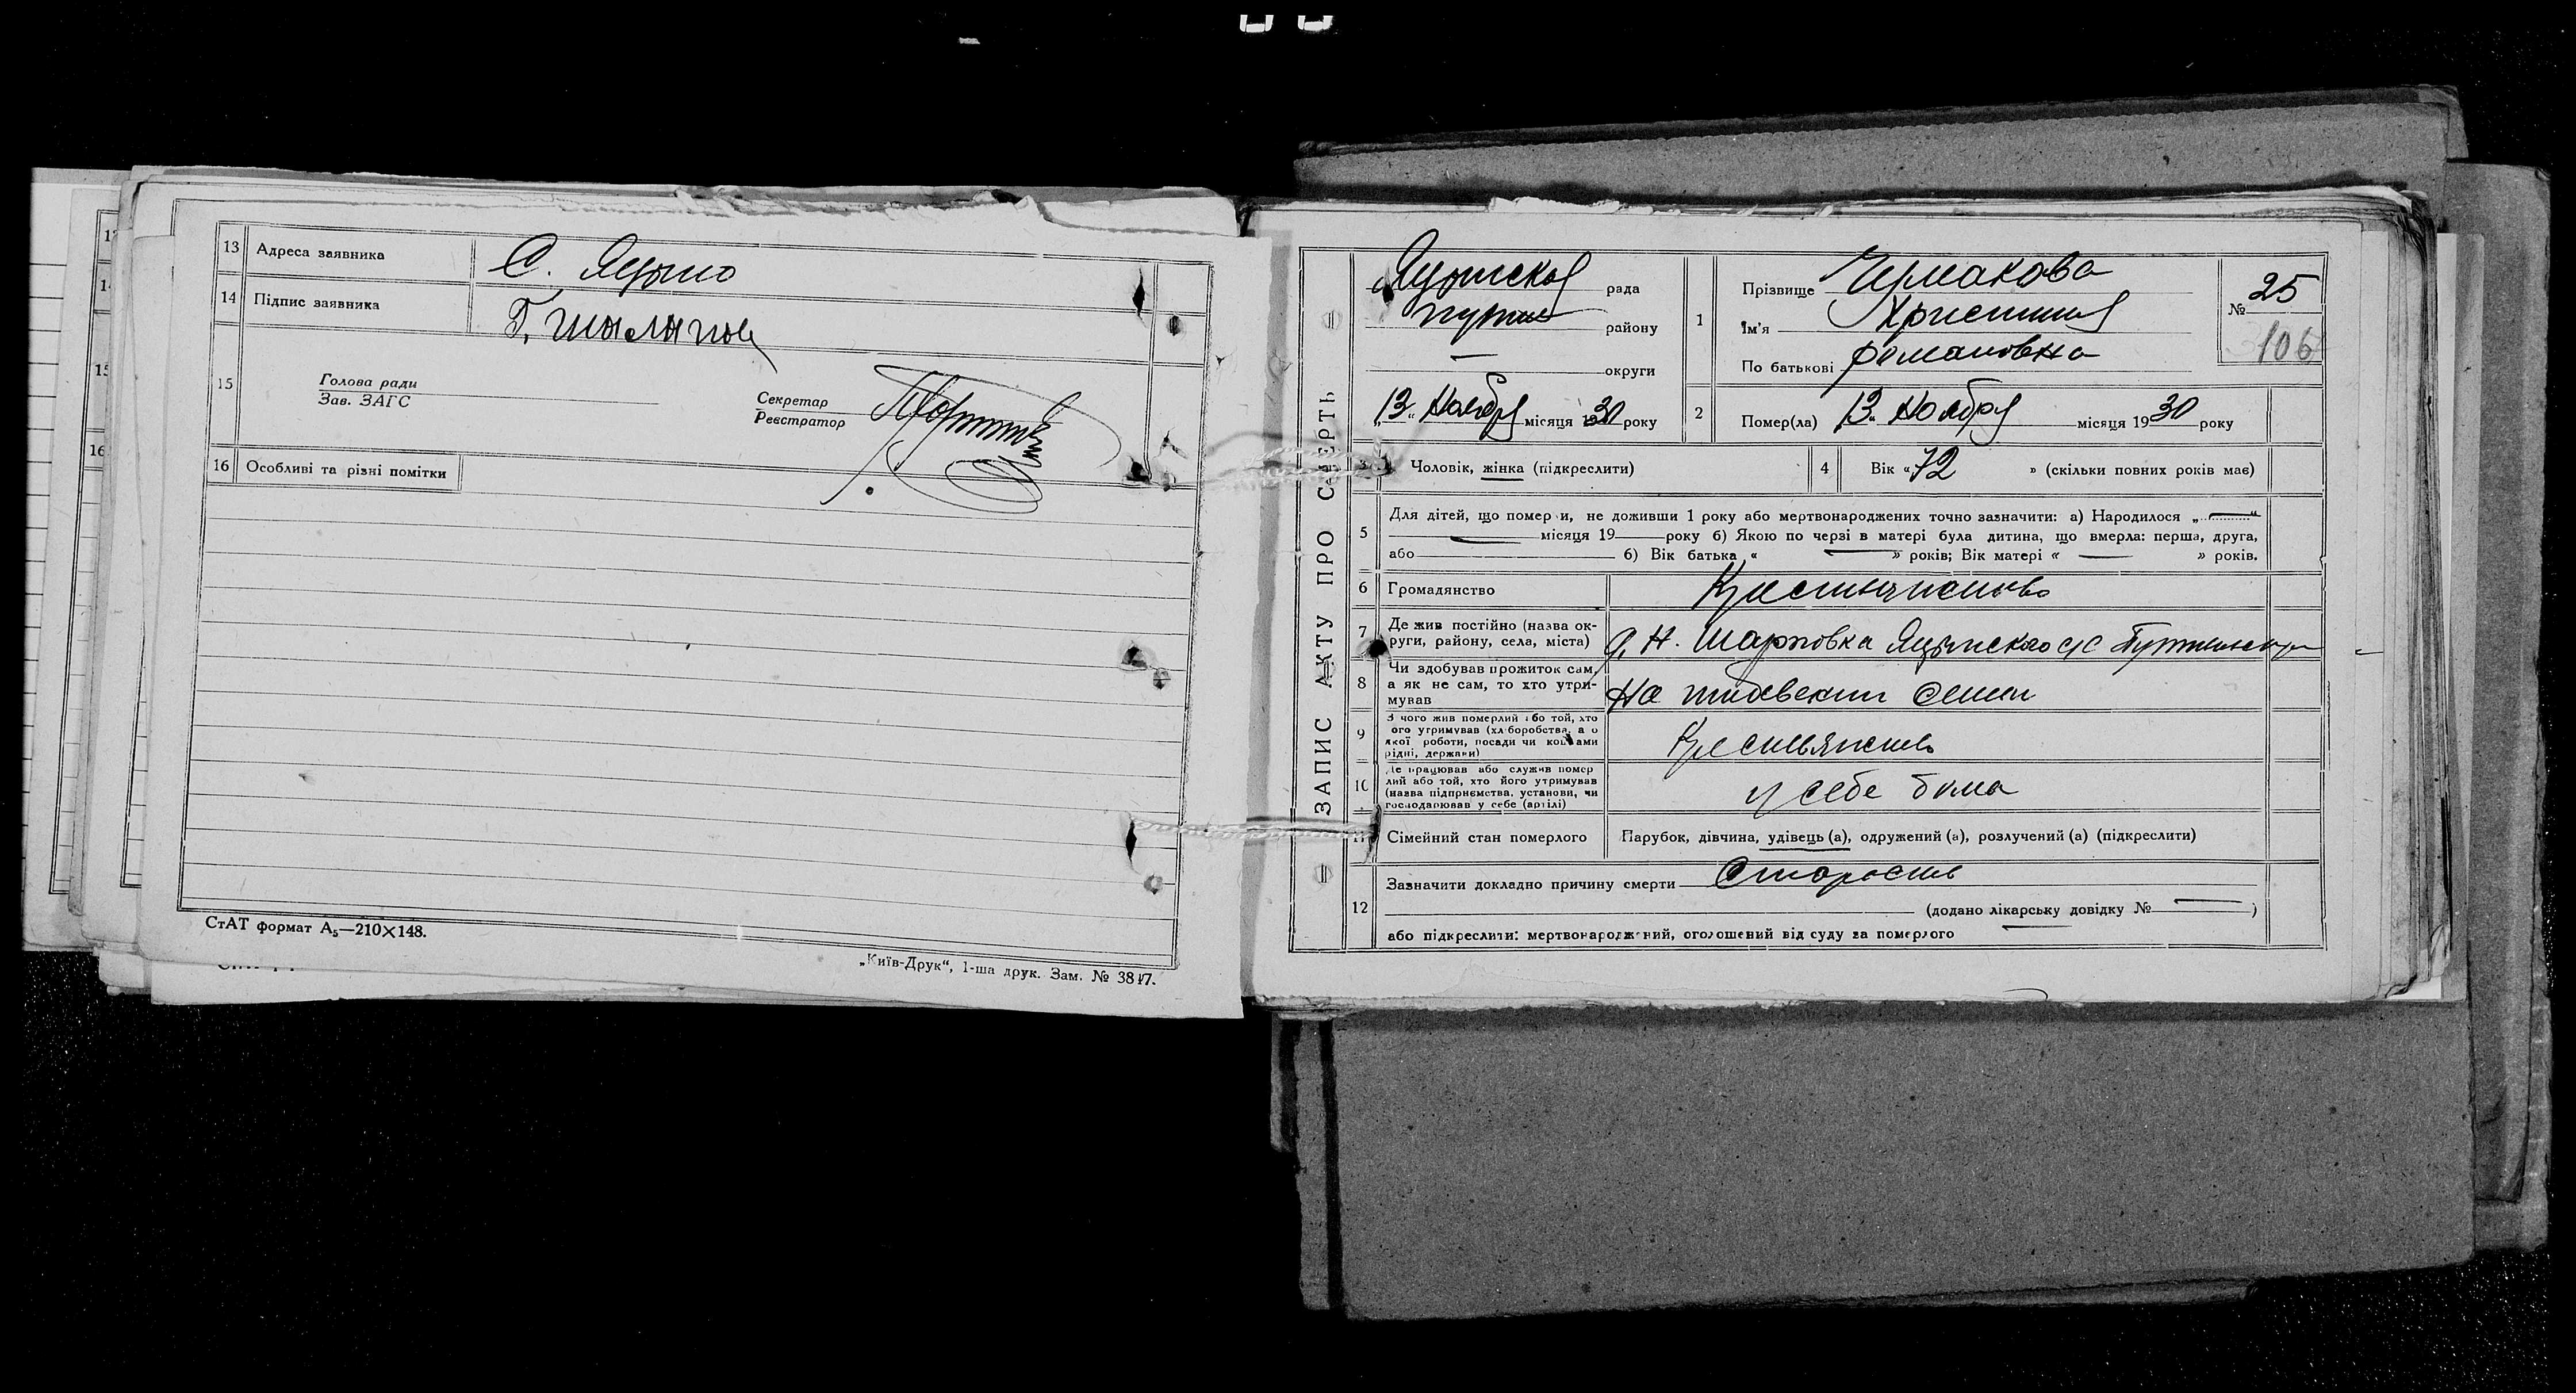 13 Адреса заявника С. Яцыно
14 Підпис заявника
15 Голова ради
Зав. ЗАГС
Секретар
Реєстратор
16 Особливі та різні помітки
СтАТ формат А5—210×148.
„Київ-Друк“, 1-ша друк. Зам. № 3817.
ЗАПИС АКТУ ПРО СМЕРТЬ
Яцынская рада
Путив району
— округи
„13“ Ноября місяця 1930 року
1 Прізвище Чермакова
Ім'я Христиния
По батькові романовна
№ 25
106
2 Помер(ла) 13 Ноября місяця 1930 року
3 Чоловік, жінка (підкреслити)
4 Вік «72» (скільки повних років має)
5 Для дітей, що померли, не доживши 1 року або мертвонароджених точно зазначити: а) Народилося „—“
— місяця 19 року б) Якою по черзі в матері була дитина, що вмерла: перша, друга,
або б) Вік батька «—» років; Вік матері «—» років.
6 Громадянство Крестьянство
7 Де жив постійно (назва ок-
руги, району, села, міста) д. Н. Шарповка Яцынского с/с
8 Чи здобував прожиток сам,
а як не сам, то хто утри-
мував На семьи
9 З чого жив померлий або той, хто
його утримував (хліборобства, а о
якої роботи, посади чи коштами
рідні, держави) Крестьянство
10 Де працював або служив помер
лий або той, хто його утримував
(назва підприємства, установи, чи
господарював у себе (артілі) у себе дома
11 Сімейний стан померлого Парубок, дівчина, удівець (а), одружений (а), розлучений (а) (підкреслити)
12 Зазначити докладно причину смерти Старость
(додано лікарську довідку № —)
або підкреслити: мертвонароджений, оголошений від суду за померлого